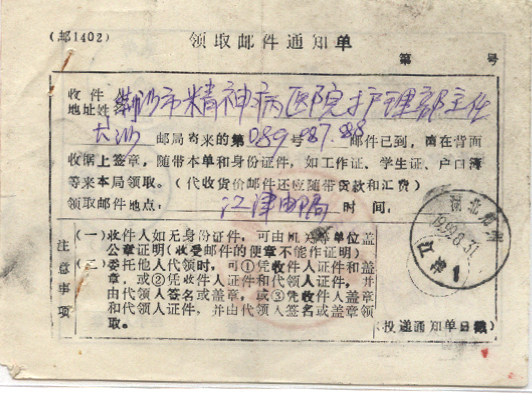 (邮1402)
领取邮件通知单
第 号
收件
地址姓名 荆沙市精神病医院护理部主任
长沙 邮局寄来的第 089 号 邮件已到，请在背面
收据上签章，随带本单和身份证件，如工作证、学生证、户口簿
等来本局领取。（代收货价邮件还应随带货款和汇费）
领取邮件地点： 江津邮局 时间：
湖北荆州
1999.8.31
江津 1
注意事项
(一)收件人如无身份证件，可由机关等单位盖
公章证明(收受邮件的便章不能作证明)
(二)委托他人代领时，可①凭收件人证件和盖
章，或②凭收件人证件和代领人证件，并
由代领人签名或盖章，或③凭收件人盖章
和代领人证件，并由代领人签名或盖章领
取。
(投递通知单日戳)